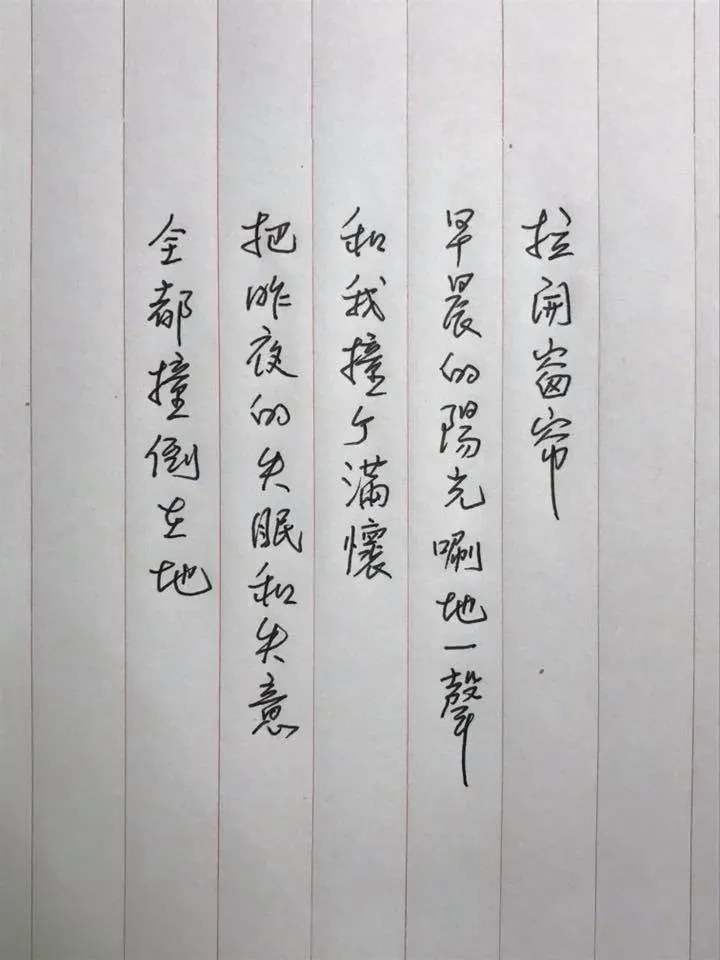 拉開窗帘
早晨的陽光唰地一聲
和我撞个滿懷
把昨夜的失眠和失意
全都撞倒在地